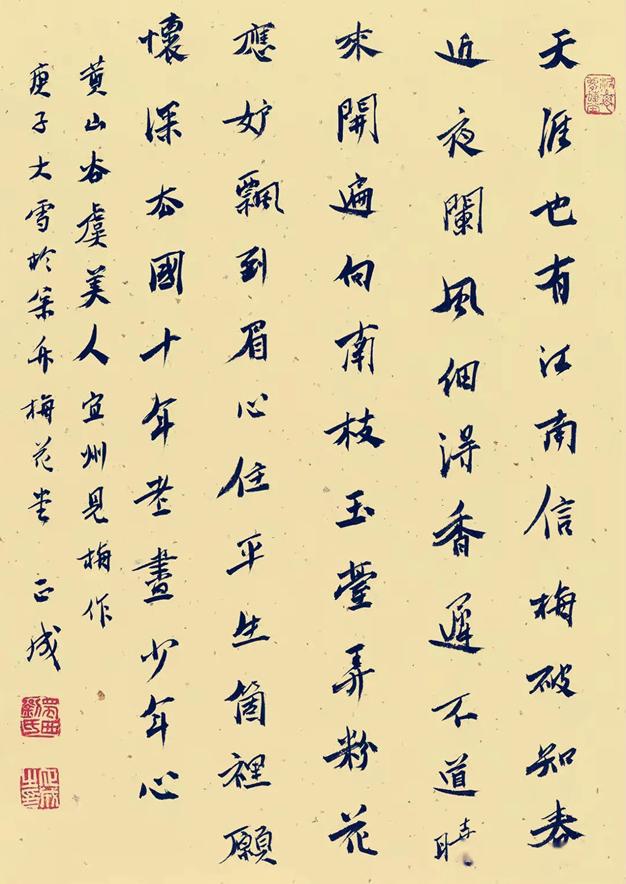 天涯也有江南信梅破知春
近夜闌風細得香遲不道曉
來開遍向南枝玉臺弄粉花
應妒飄到眉心住平生箇裡願
懷深去國十年老盡少年心
黄山谷虞美人宜州見梅作
庚子大雪於松竹梅花堂 正成
劉氏
正成之印